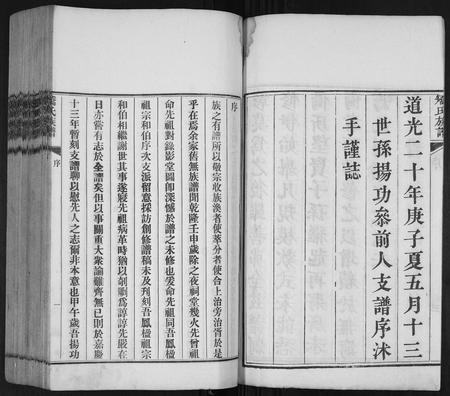 道光二十年庚子夏五月十三
世孫揚功叅前人支譜序沭
手謹誌
族譜
序
序
族之有譜所以敬宗收族渙者使萃分者使合上治旁治胥於是
乎在焉余家舊無族譜聞乾隆壬申歲除之夜祠堂幾火先曾祖
命先祖對錄影堂圖卽深憾於譜之未修也爰命先祖同吾鳳樓
祖宗和伯序次支派留意採訪創修譜稿未及刋刻吾鳳樓祖宗
和伯相繼謝世其事遂寢先祖病革時猶以剞劂爲諄諄先嚴在
日亦嘗有志於全譜矣但以事關重大衆論難齊無已則於嘉慶
十三年暫刻支譜聊以慰先人之志爾非本意也甲午歲吾揚功
氏族譜
序
一